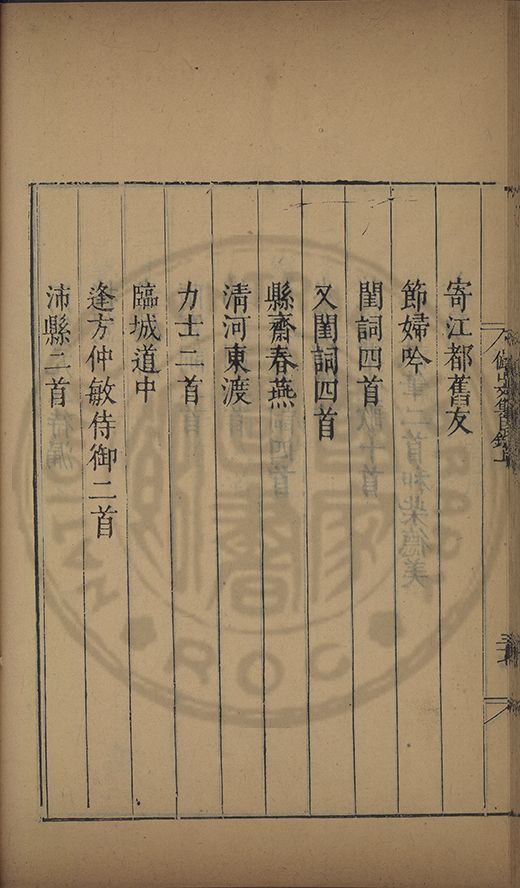 寄江都舊友
節婦吟
閨詞四首
又閨詞四首
縣齋春燕
清河東渡
力士二首
臨城道中
逢方仲敏侍御二首
沛縣二首